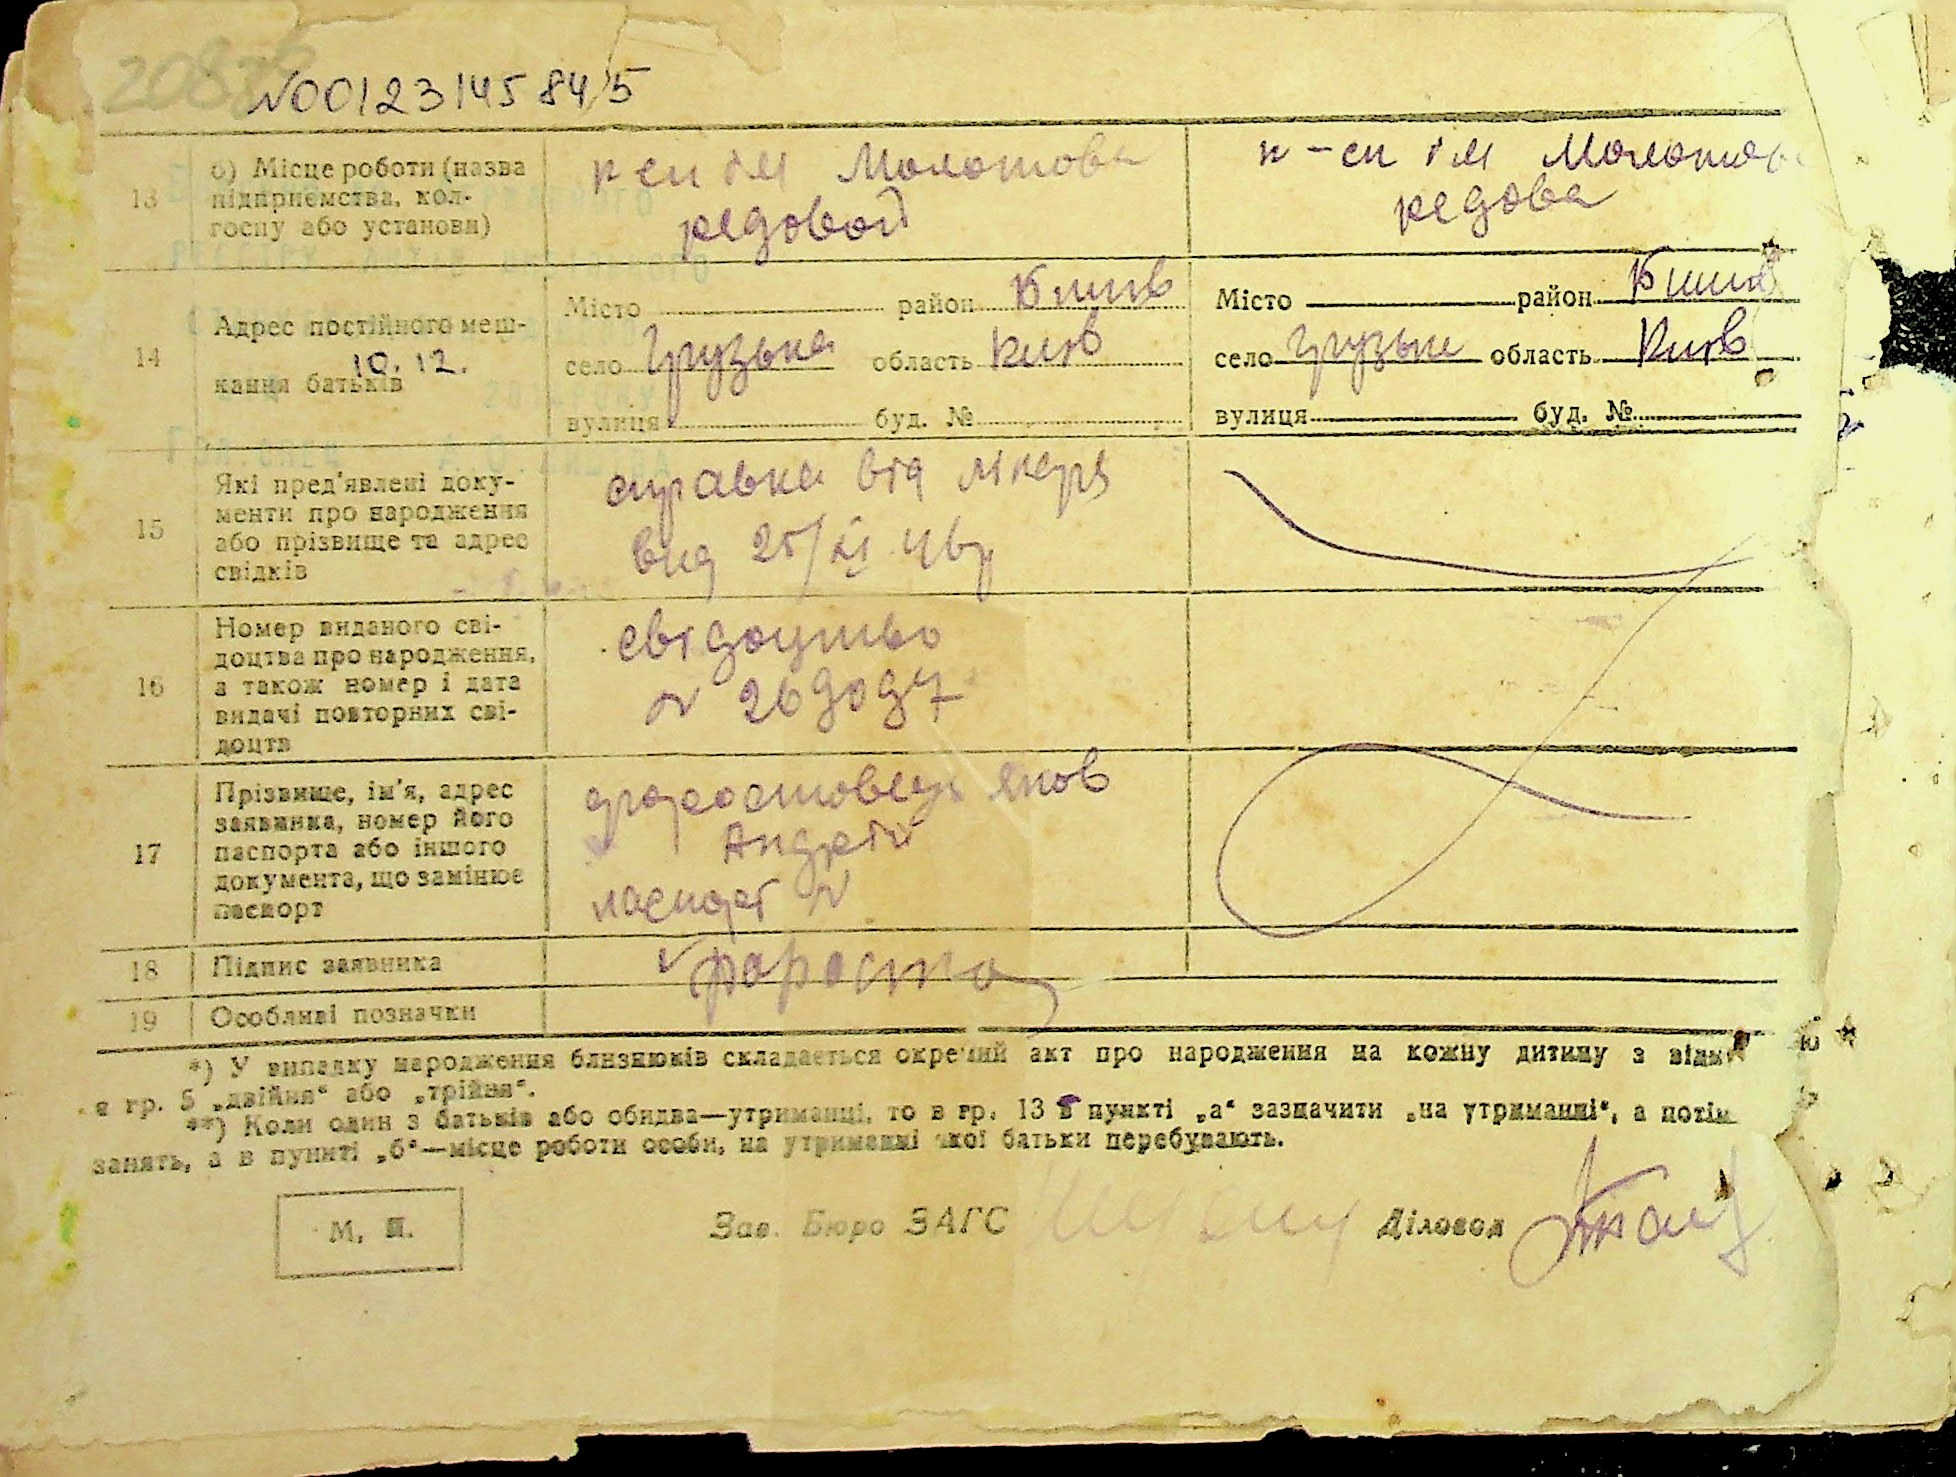 №00123145845
13
б) Місце роботи (назва
підприємства, кол-
госпу або установи)
к сп ім Молотова
редовой
к-сп ім Молотова
редова
14
Адрес постійного меш-
10.12.
кання батьків
Місто район
село Грузька область Київ
вулиця буд. №
Місто район
село Грузьки область Київ
вулиця буд. №
15
Які пред'явлені доку-
менти про народження
або прізвище та адрес
свідків
справка від лікаря
вид 25/XI
16
Номер виданого сві-
доцтва про народження,
а також номер і дата
видачі повторних сві-
доцтв
свідоцтво
№ 26
17
Прізвище, ім'я, адрес
заявника, номер його
паспорта або іншого
документа, що замінює
паспорт
Яков
Андрей
паспорт №
18
Підпис заявника
19
Особливі позначки
*) У випадку народження близнюків складається окремий акт про народження на кожну дитину з відміт
в гр. 5 „двійня“ або „трійня“.
**) Коли один з батьків або обидва—утриманці, то в гр. 13 в пункті „а“ зазначити „на утриманні“, а потім
занять, а в пункті „б“—місце роботи особи, на утриманні якої батьки перебувають.
М. П.
Зав. Бюро ЗАГС
Діловод